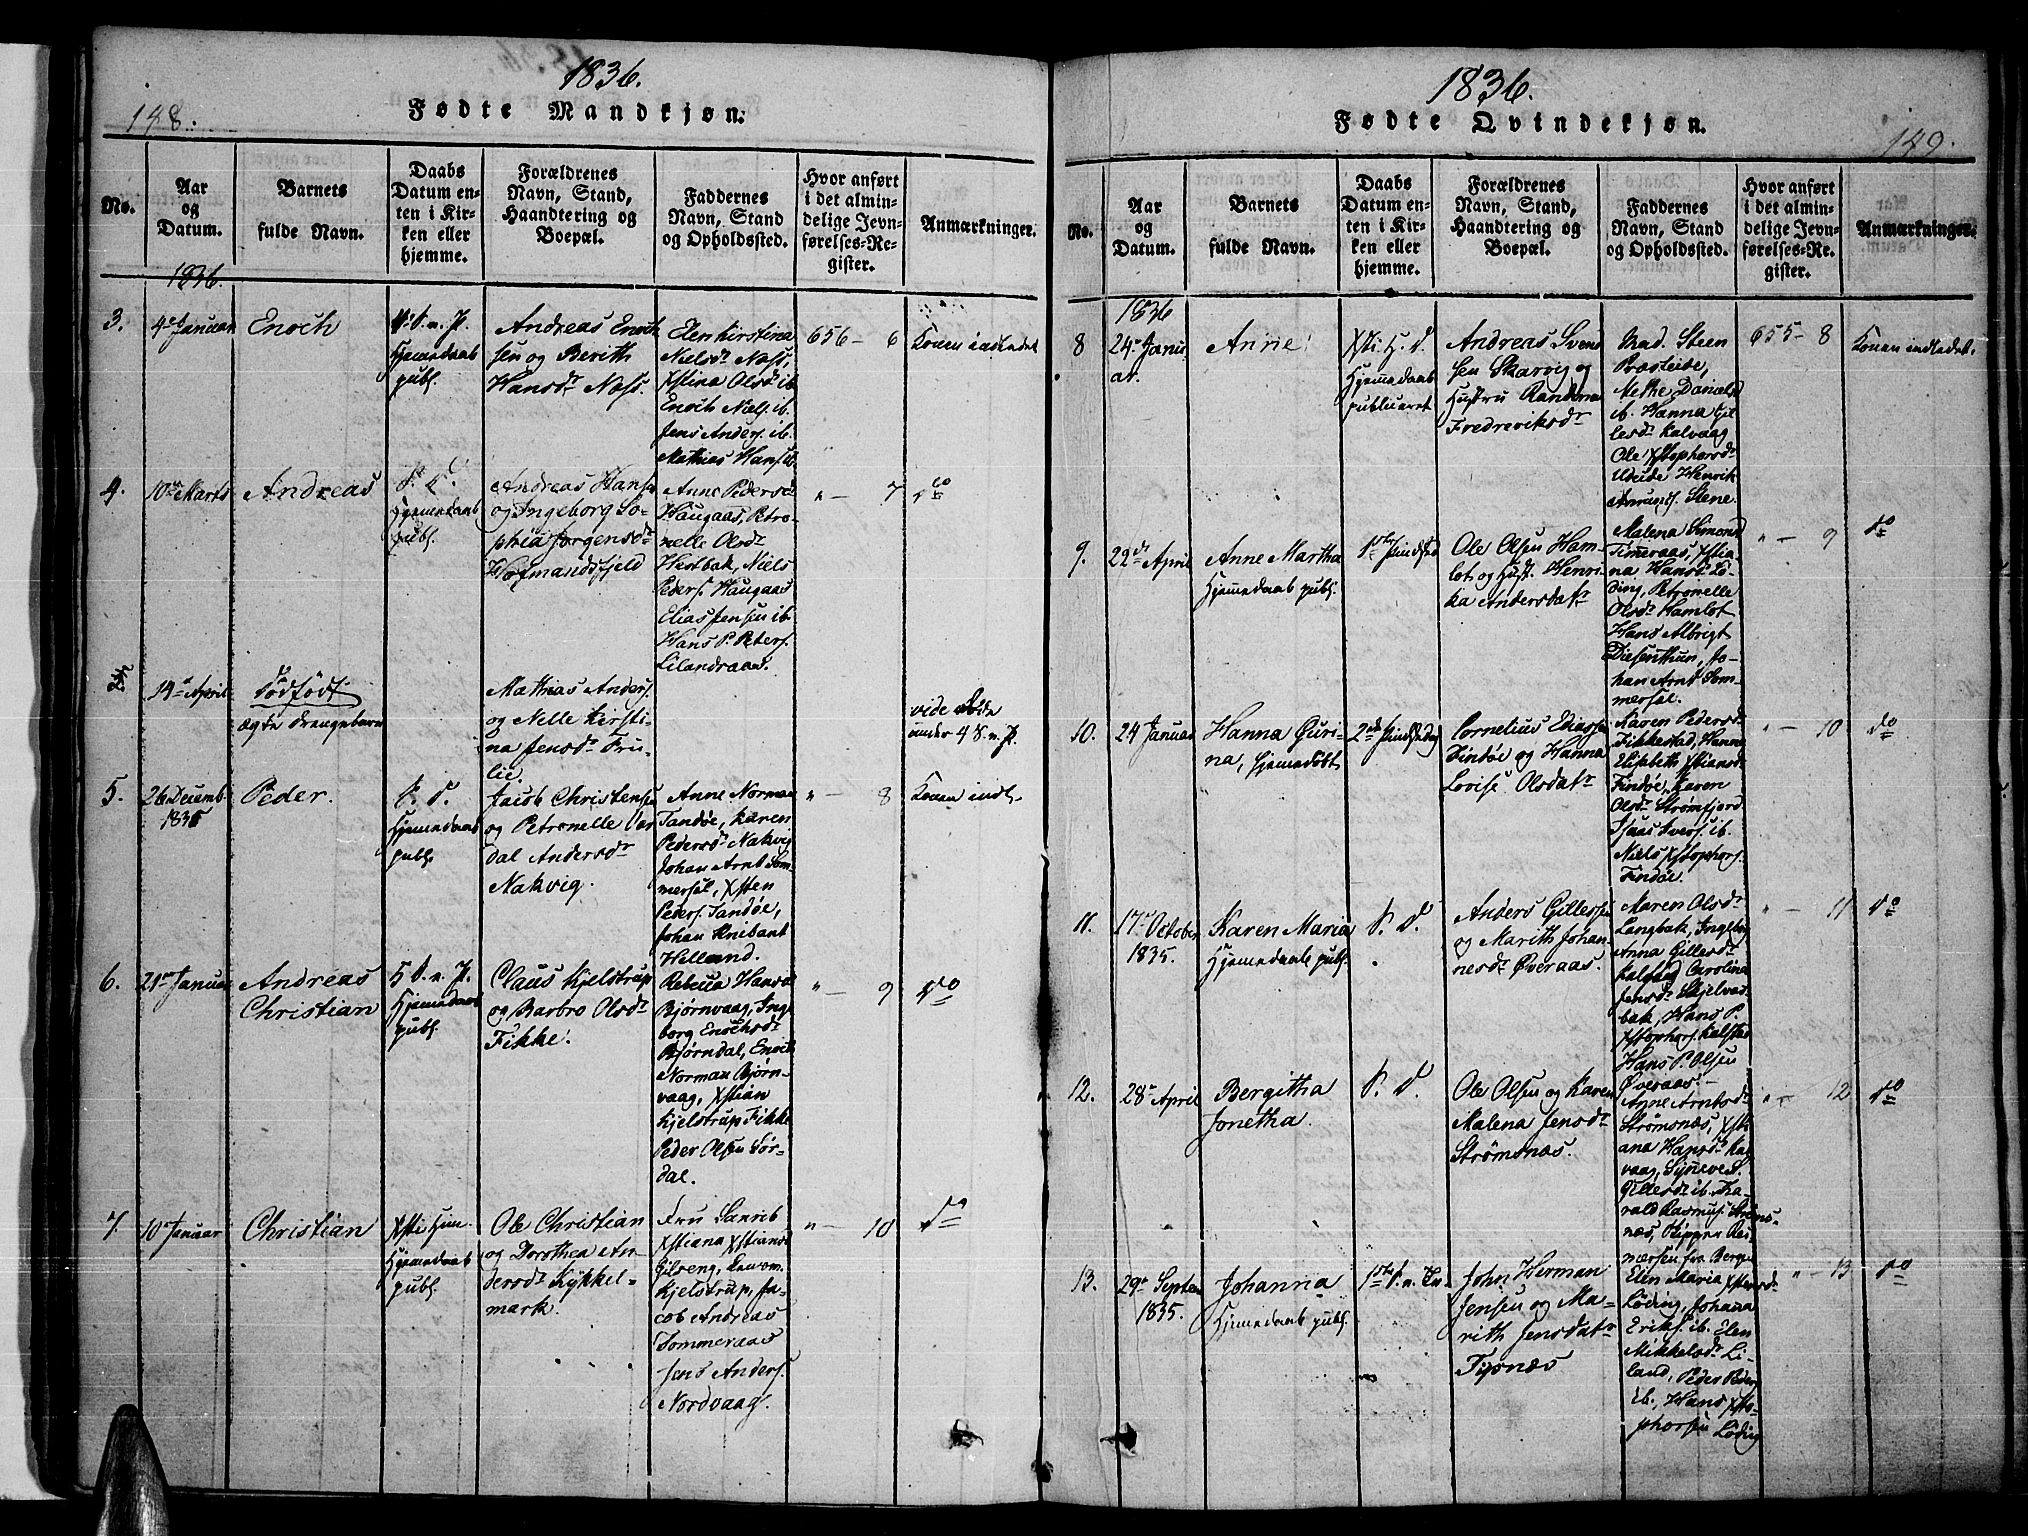 1836.
148.
Fødte Mandkjøn.
No.
Aar
og
Datum.
Barnets
fulde Navn.
Daabs
Datum en-
ten i Kir-
ken eller
hjemme.
Forældrenes
Navn, Stand,
Haandtering og
Boepæl.
Faddernes
Navn, Stand
og Opholdssted.
Hvor anført
i det almin-
delige Jevn-
førelses-Re-
gister.
Anmærkninger.
1836
3.
4de Januar
Enoch
Hjemmedaab
publ.
Andreas Enoch
sen og Berith
Hansdr Næss.
Elen Kirstina
Nielsdr Næss,
Xstina Olsdr ib.
Enoch Niels. ib.
Jens Anders. ib.
Mathias Hans. ib.
656 - 6
Konen indledet
4.
10de Marts
Andreas
Hjemmedaab
publ.
Andreas Hans.
og Ingeborg So-
phia Jørgensdr
Hofmandsfjeld
Anne Pedersdr
Haugaas, Petro-
nelle Olsdr
Hestbak, Niels
Peders. Haugaas
Elias Jensen ib.
Hans P. Peters.
Lilandraas.
" - 7
do
14de April
dødfødt
ægte drengebarn
Mathias Anders.
og Nelle Kersti-
na Jensdr Tru-
lie.
vide Døde
under 4 S. n. P.
5.
26 Decemb.
1835
Peder.
Hjemmedaab
publ.
Jacob Christensen
og Petronelle Car
dal Andersdr
Nakvig.
Anne Norman
Tandøe, Karen
Pedersdr Nakvig
Johan Arnt Som-
mersel, Xsten
Peders. Tandøe,
Johan Knibant
Helland.
" - 8
Konen indl.
6.
21de Januar
Andreas
Christian
5 S. n. P.
Hjemmedaab
publ.
Claus Kjelstrup
og Barbro Olsdr
Fikke.
Rebecca Hansdr
Bjørnvaag, Inge
borg Enochsdr
Bjørndal, Enoch
Norman Bjørn-
vaag, Xstian
Kjelstrup Fikke
Peder Olsen Sør-
dal.
" - 9
do
7.
10de Januar
Christian
Xsti Him.
Hjemmedaab
publ.
Ole Christian
og Dorothea An-
dersdr Kykkel-
mark.
Fru
Xstiana Xstiansdr
Kjelstrup, Ja-
cob Andreas
Sommeraas
Jens Anders.
Nordvaag.
" - 10
do
1836.
149.
Fødte Qvindekjøn.
No.
Aar
og
Datum.
Barnets
fulde Navn.
Daabs
Datum en-
ten i Kir-
ken eller
hjemme.
Forældrenes
Navn, Stand,
Haandtering og
Boepæl.
Faddernes
Navn, Stand
og Opholdssted.
Hvor anført
i det almin-
delige Jevn-
førelses-Re-
gister.
Anmærkninger.
1836
8
24de Janu
ar.
Anne
Xsti H. D.
Hjemmedaab
publiceret
Andreas Sven
sen Skarvig og
Hustru Randina
Fredreviksdr
Mad. Steen
Præsteide,
Methe Danielsdr
ib. Hanna Gil
lesdr Kalvaag
Ole Xstophersdr
Udeide Henrik
Amunds. Stene.
655 - 8
Konen indledet.
9.
22de April
Anne Martha
Hjemmedaab publ.
1ste Pindsedag
Ole Olsen Ham-
lot og Hust. Henri-
ka Andersdatr
Malena Simonsdr
Timeraas, Xstia-
na Hansdr Lø-
ding, Petronelle
Olsdr Hamlot
Hans Albrigt
Diesenthun, Jo-
han Arnt Som-
mersel.
" - 9
do
10.
24 Januar
Hanna Øuri-
na, hjemmedøbt
2den Pindsedag
Cornelius Eliassen
Findøe og Hanna
Lovise Olsdatr
Karen Pedersdr
Fikkestad, Hanna
Elisbeth Xstiansdr
Findøe, Karen
Olsdr Strømfjord
Isaac Ivers. ib.
Niels Xstophers.
Findøe.
" - 10
do
11.
17de October
1835.
Karen Maria
Hjemmedaab publ.
Anders Gillessen
og Marith Johan
nesdr Øveraas.
Maren Olsdr
Langbak, Ingeborg
Anna Gillesdr
Kalfard Carolina
Jensdr Skjelvas-
bak, Hans P.
Xstophers. Kalstad
Hans P. Olsen
Øveraas.
" - 11
do
12.
28de April
Bergitha
Jonetha.
Ole Olsen og Karen
Malena Jensdr
Strømsnæs.
Anne Arntsdr
Strømsnæs, Xsti
ana Hansdr Kal
vaag, Synneve S.
Gillesdr ib. Ha-
rald Rasmus. Strøms-
næs, Skipper Ras-
mersen fra Bergen
" - 12
do
13.
29de Septem
1835.
Johanna
Hjemmedaab publ.
John Herman
Jensen og Ma-
rith Jensdatr
Tysnæs
Elen Maria Xstensdr
Løding, Johana
Eriks. ib. Elen
Mikkelsdr Li-
land, Peder Peders.
ib., Hans Xsto-
phersen Løding
" - 13
do